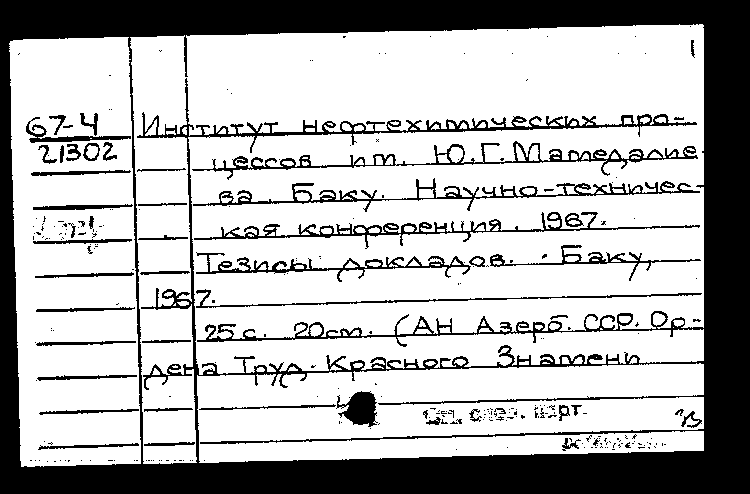 1
67-4 Институт нефтехимических про-
21302 цессов им. Ю.Г. Мамедалие-
ва. Баку. Научно-техничес-
кая конференция. 1967.
Тезисы докладов. Баку,
1967.
25 с. 20см. (АН Азерб. ССР. Ор-
дена Труд. Красного Знамени
См. след. карт.